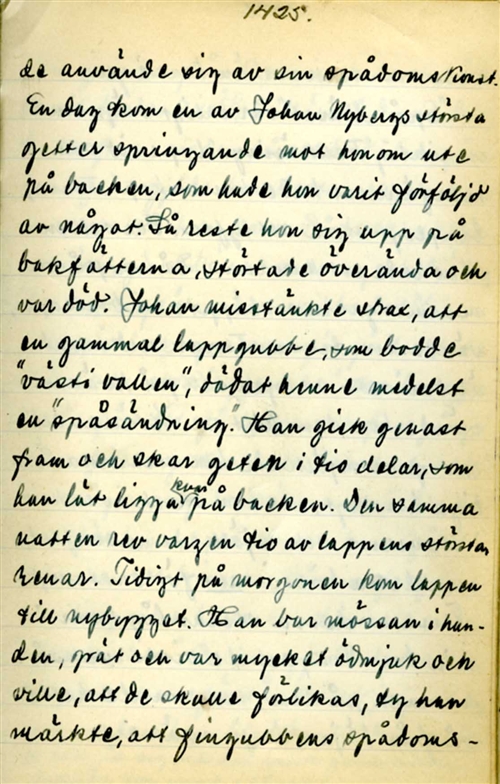 1425.
de använde sig av sin spådomskonst.
En dag kom en av Johan Nybergs största
getter springande mot honom ute
på backen, som hade hon varit förföljd
av något. Så reste hon sig upp på
bakfötterna, störtade överända och
var död. Johan misstänkte strax, att
en gammal lappgubbe, som bodde
"västi vallen", dödat henne medelst
en "spåsändning". Han gick genast
fram och skar geten i tio delar, som
han lät ligga kvar på backen. Den samma
natten rev vargen tio av lappens största
renar. Tidigt på morgonen kom lappen
till nybygget. Han bar mössan i han-
den, grät och var mycket ödmjuk och
ville, att de skulle förlikas, ty han
märkte, att fingubbens spådoms-